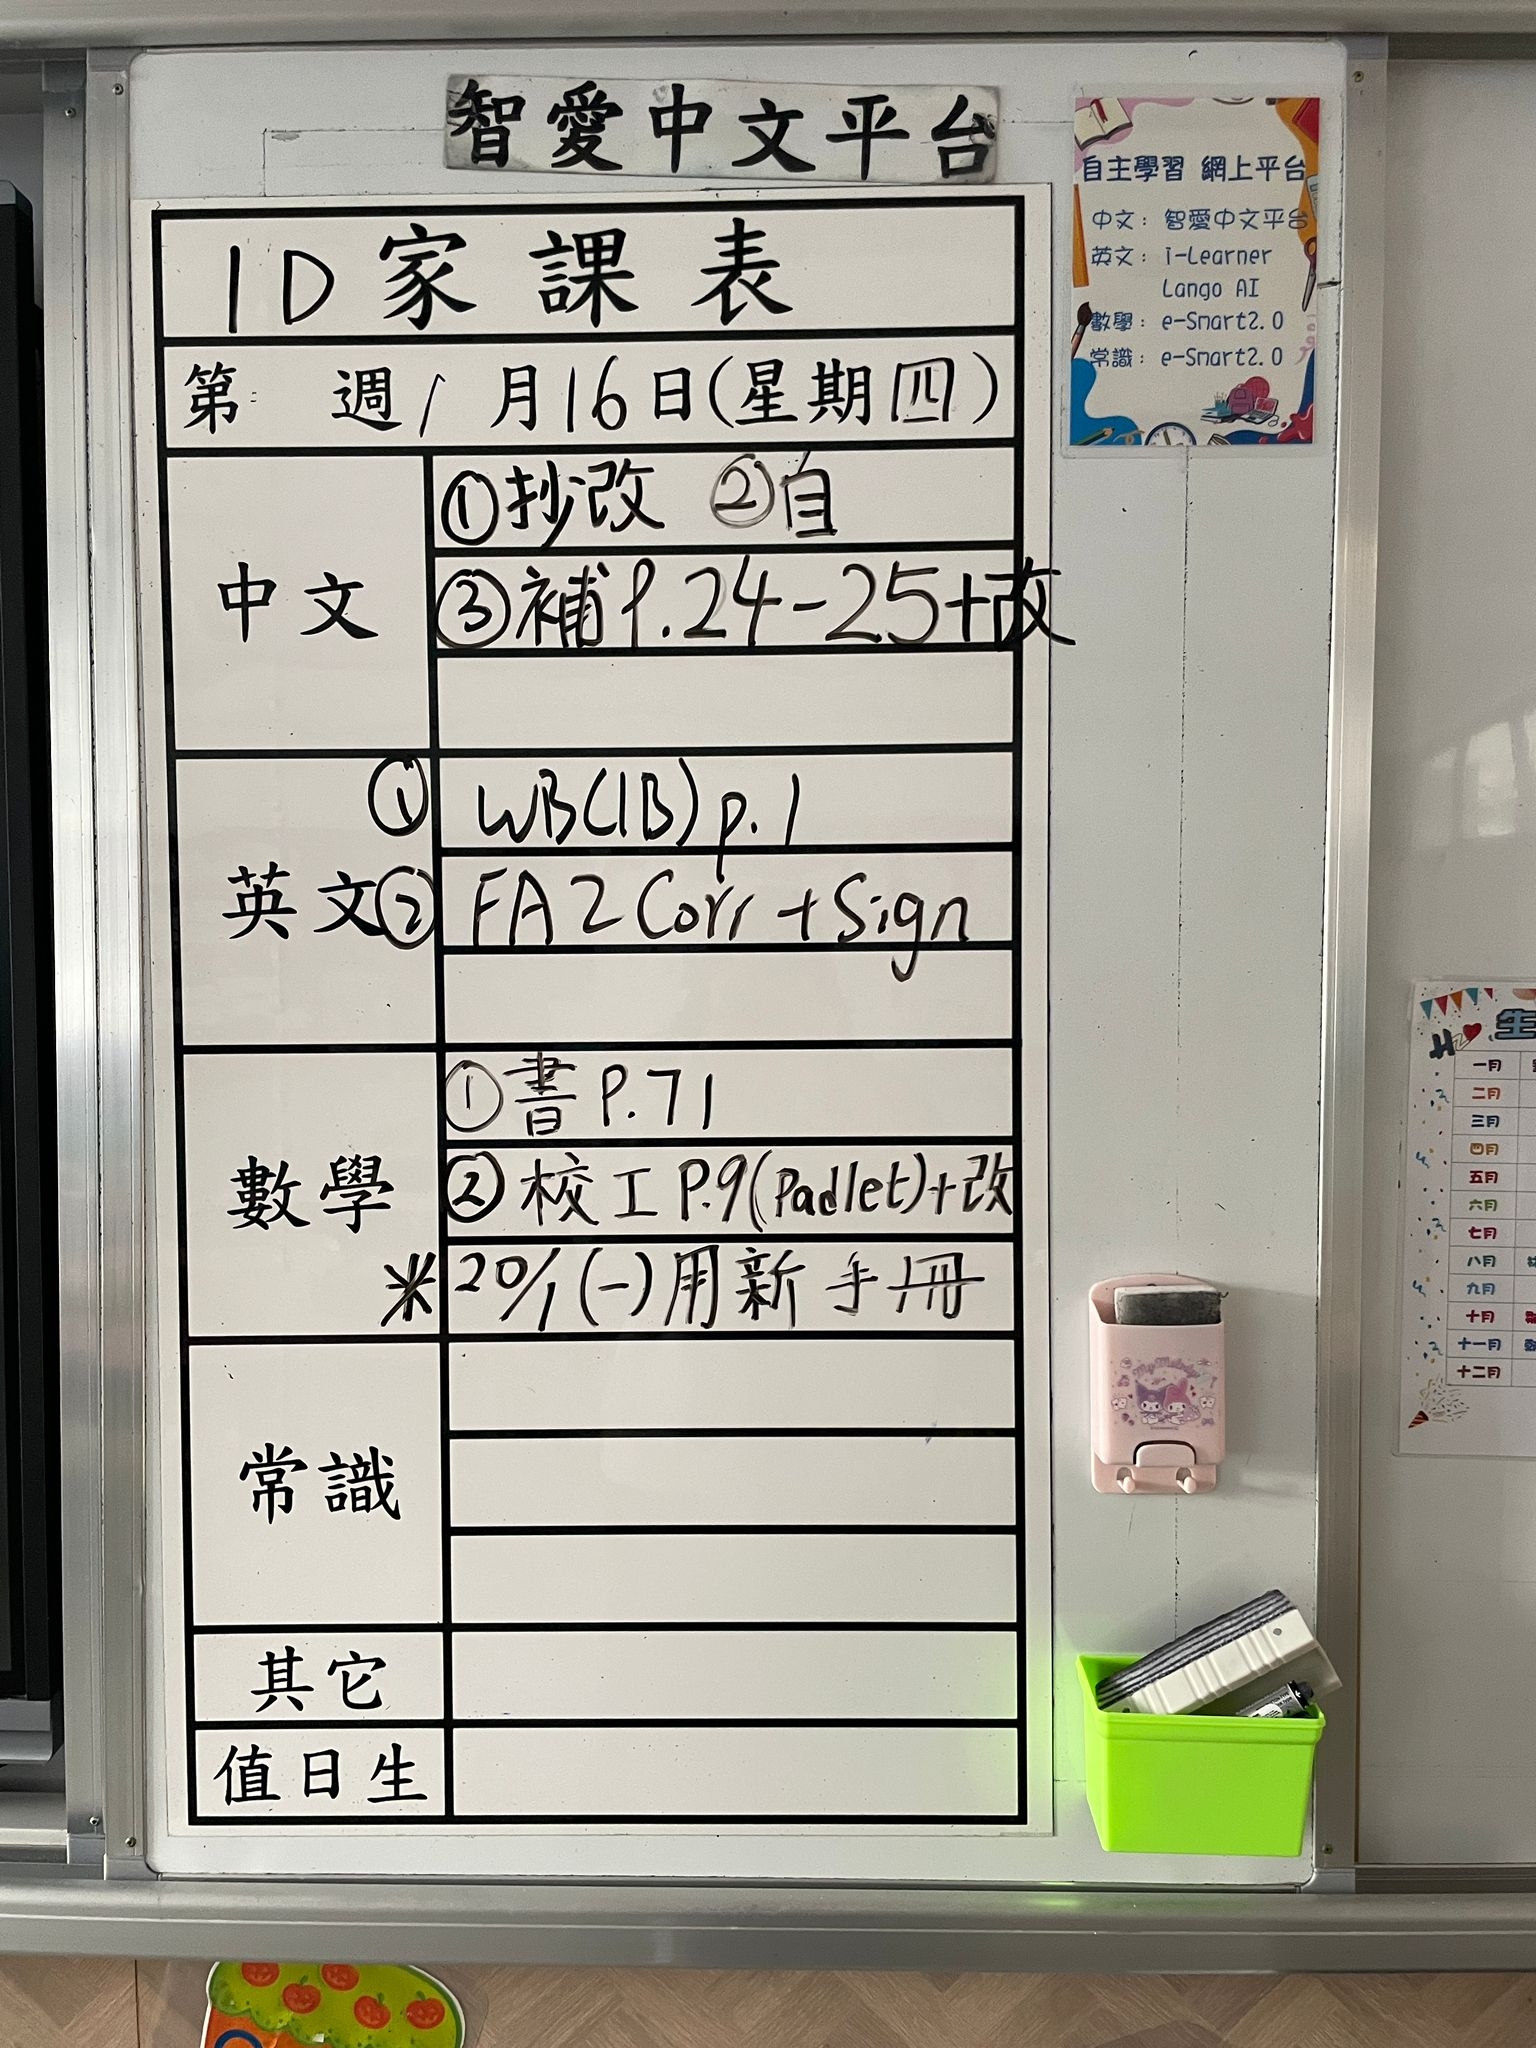 智愛中文平台
1D家課表
第 週1月16日(星期四)
中文
①抄改 ②自
③補P.24-25+改
英文
① WB(1B)p.1
② FA2 Corr + Sign
數學
①書P.71
②校工P.9(Padlet)+改
※20/1(一)用新手冊
常識
其它
值日生
自主學習 網上平台
中文：智愛中文平台
英文：i-Learner
Lango AI
數學：e-Smart2.0
常識：e-Smart2.0
生
一月
二月
三月
四月
五月
六月
七月
八月
九月
十月
十一月
十二月
My Melody